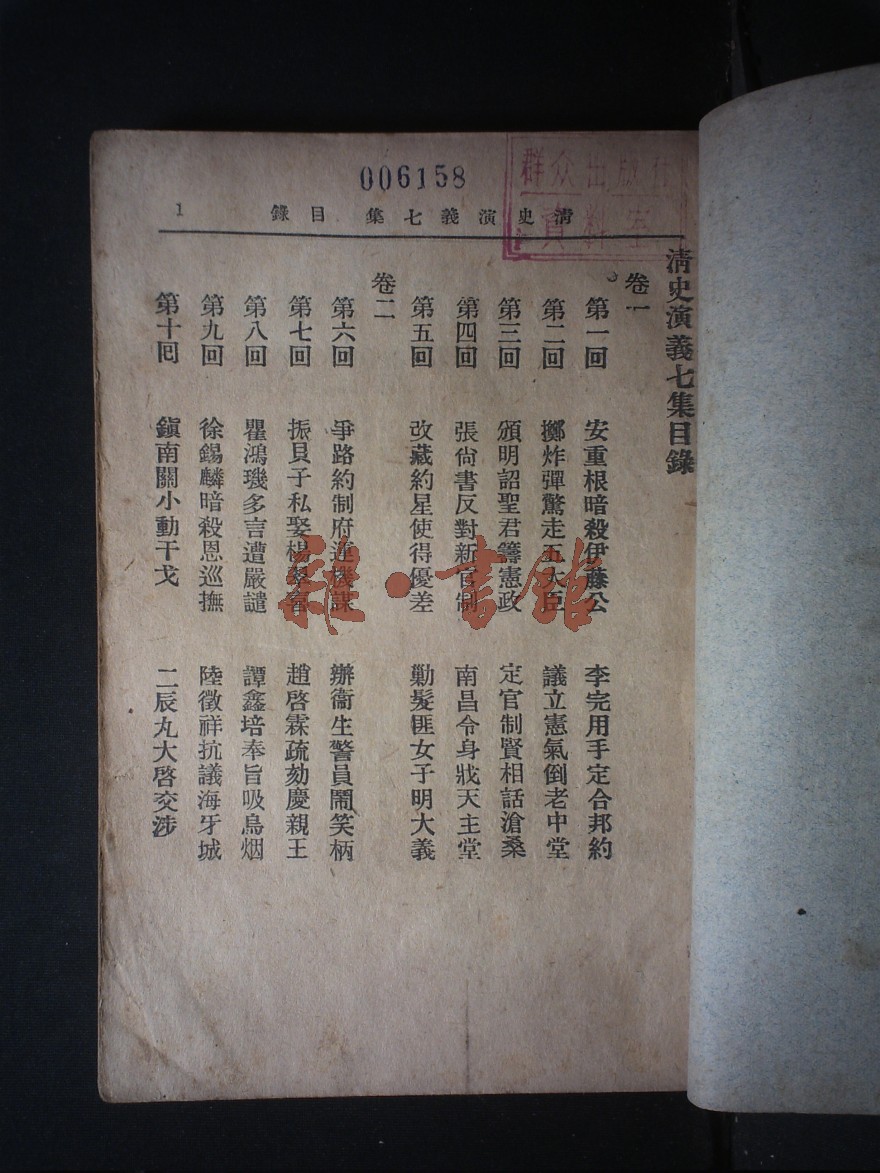 006158
群众出版社
資料室
清史演義七集 目錄
1
清史演義七集目錄
卷一
第一回 安重根暗殺伊藤公 李完用手定合邦約
第二回 擲炸彈驚走五大臣 議立憲氣倒老中堂
第三回 頒明詔聖君籌憲政 定官制賢相話滄桑
第四回 張尙書反對新官制 南昌令身戕天主堂
第五回 改藏約星使得優差 勦髮匪女子明大義
卷二
第六回 爭路約制府運機謀 辦衞生警員鬧笑柄
第七回 振貝子私娶楊翠喜 趙啓霖疏劾慶親王
第八回 瞿鴻璣多言遭嚴譴 譚鑫培奉旨吸烏烟
第九回 徐錫麟暗殺恩巡撫 陸徵祥抗議海牙城
第十回 鎭南關小動干戈 二辰丸大啓交涉
雅·書館